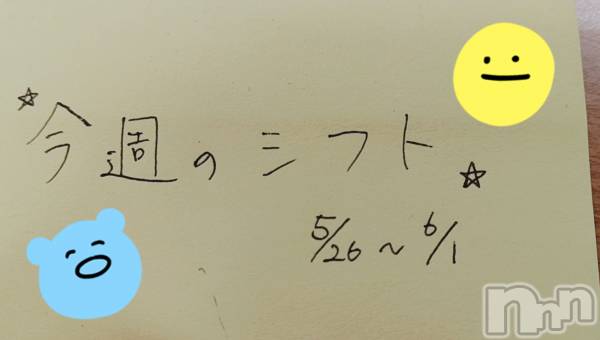 ☆今週のシフト☆
5/26～6/1
nnn